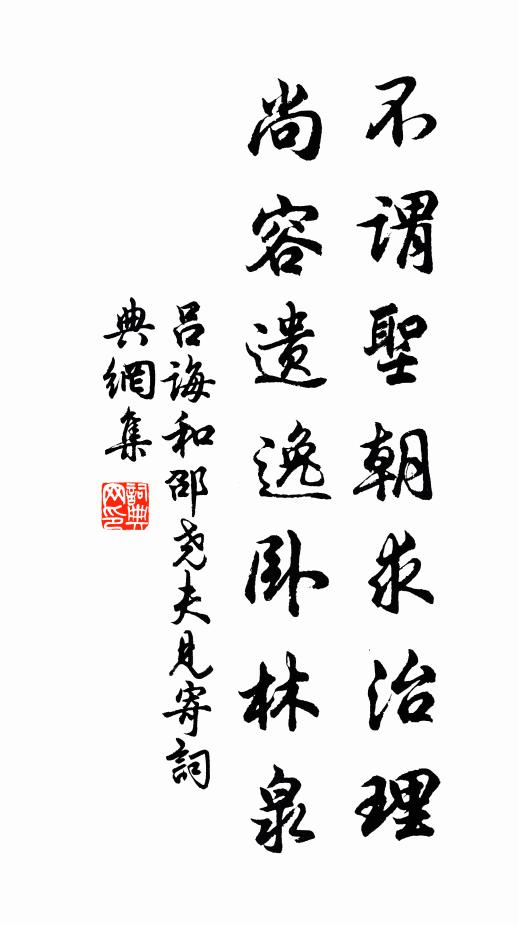 不谓聖朝求治理
尚容遗逸卧林泉
吕誨和邵尧夫見寄詞
典網集
詞典网印